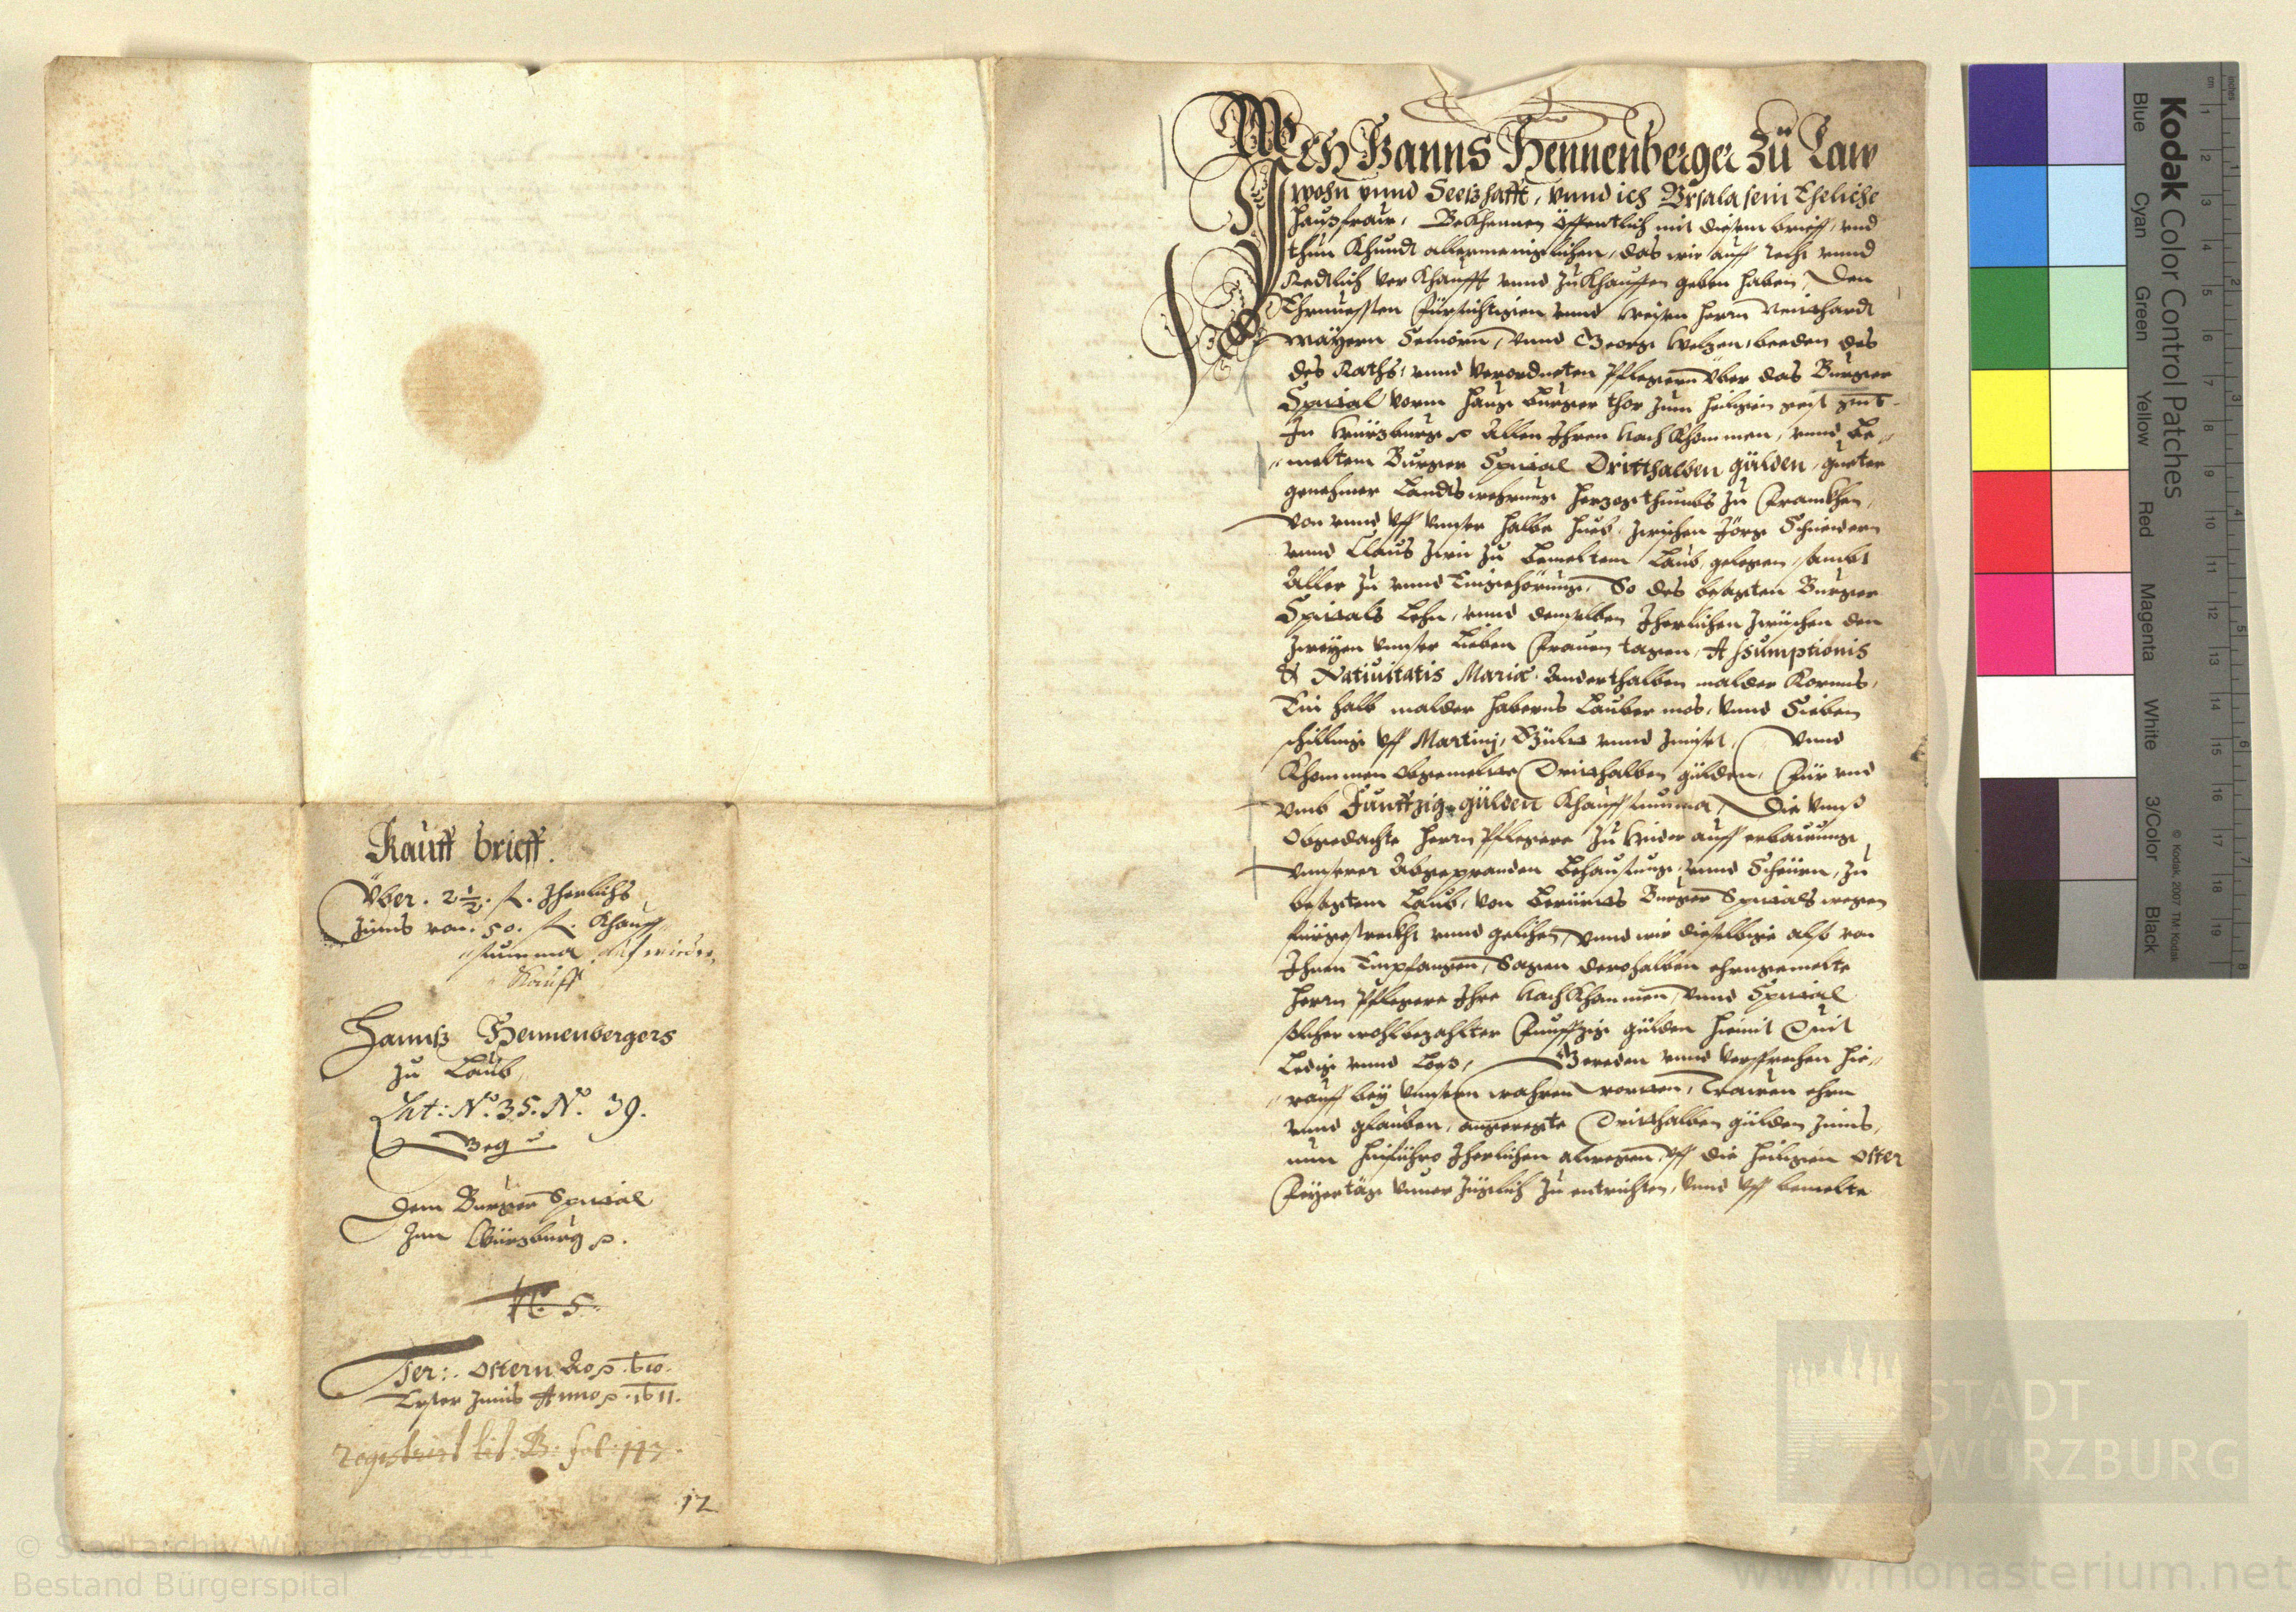 Kauff brieff.
Über . 2½ . fl. Jherlichs
Zinns von . 50 . fl. Khauff
summa auf wieder
Kauff
Hannß Hennenbergers
zu Laub
Lit: No. 35. No. 39.
Dem Burger Spital
Inn Würzburg
N. 5.
Ter: Ostern Ao 610.
Erster Zinns Anno 1611.
registrirt lit. B. fol: 113.
12
Ich Hanns Hennenberger Zu Law
wohn vnnd Seeßhafft, vnnd ich Vrsala sein Eheliche
haußfraw, Bekhennen öffentlich mit diesem brieff, vnd
thun Khundt allermeniglichen, das wir auff recht vnnd
Redtlich ver Khaufft vnnd zu Khauffen geben haben, Den
Ehrnuesten fürsichtigen vnnd weisen herrn
Mayern Seniorn, vnnd Georg beeden des
des Raths, vnnd verordneten Pflegern über das Burger
Spital vorm haug Burger thor zum heiligen geist
In Würzburg allen Ihren nach Khommen, vnnd be-
meltem Burger Spital Dritthalben gülden, gueter
genehmer Landtswehrung herzogthumbs zu Franckhen,
von vnnd vff vnser halbe hueb, zwischen Jörg Schneidern
vnnd Claus zu bemeltem Laub gelegen, sambt
aller zu vnnd Eingehörung, So des besagten Burger
Spitals Lehn, vnnd demselben Jherlichen zwischen den
zweyen vnser Lieben frauen tagen, Assumptionis
& Natiuitatis Mariæ, anderthalben malder Korns,
Ein halb malder haberns Lauber mos, vnnd Sieben
schilling vff Martinj, Gült vnnd Zinset, Vnnd
Khommen obgemelte Dritthalben gülden, für vnd
vmb Funffzig gülden Khauffsumma, Die vnns
obgedachte herrn Pflegere zu wider auff erbauung
vnnserer abgepranden behausung vnnd Scheurn, zu
besagtem Laub, von berürts Burger Spitals wegen
fürgestreckht vnnd gelihen, vnnd wir dieselbige also von
Ihnen Empfangen, Sagen derohalben ehrngemelte
herrn Pflegere Ihre nach Khommen, vnnd Spital
solcher wohlbezahlter funffzig gülden hiemit Quit
Ledig vnnd Loß, Gereden vnnd versprechen hie-
rauff bey vnnsern wahren worten, trauen ehrn
vnnd glauben, angeregte Dritthalben gülden Zinns,
nun hinführo Jherlichen alwegen vff die heiligen Oster
feyertag vnuer züglich zu entrichten, vnnd vff bemelte
Kodak Color Control Patches
© Kodak, 2007 TM: Kodak
Blue Cyan Green Yellow Red Magenta White 3/Color Black
cm 1 2 3 4 5 6 7 8 9 10 11 12 13 14 15 16 17 18 19
inches 1 2 3 4 5 6 7 8
STADT
WÜRZBURG
© Stadtarchiv Würzburg 2011
Bestand Bürgerspital
www.monasterium.net